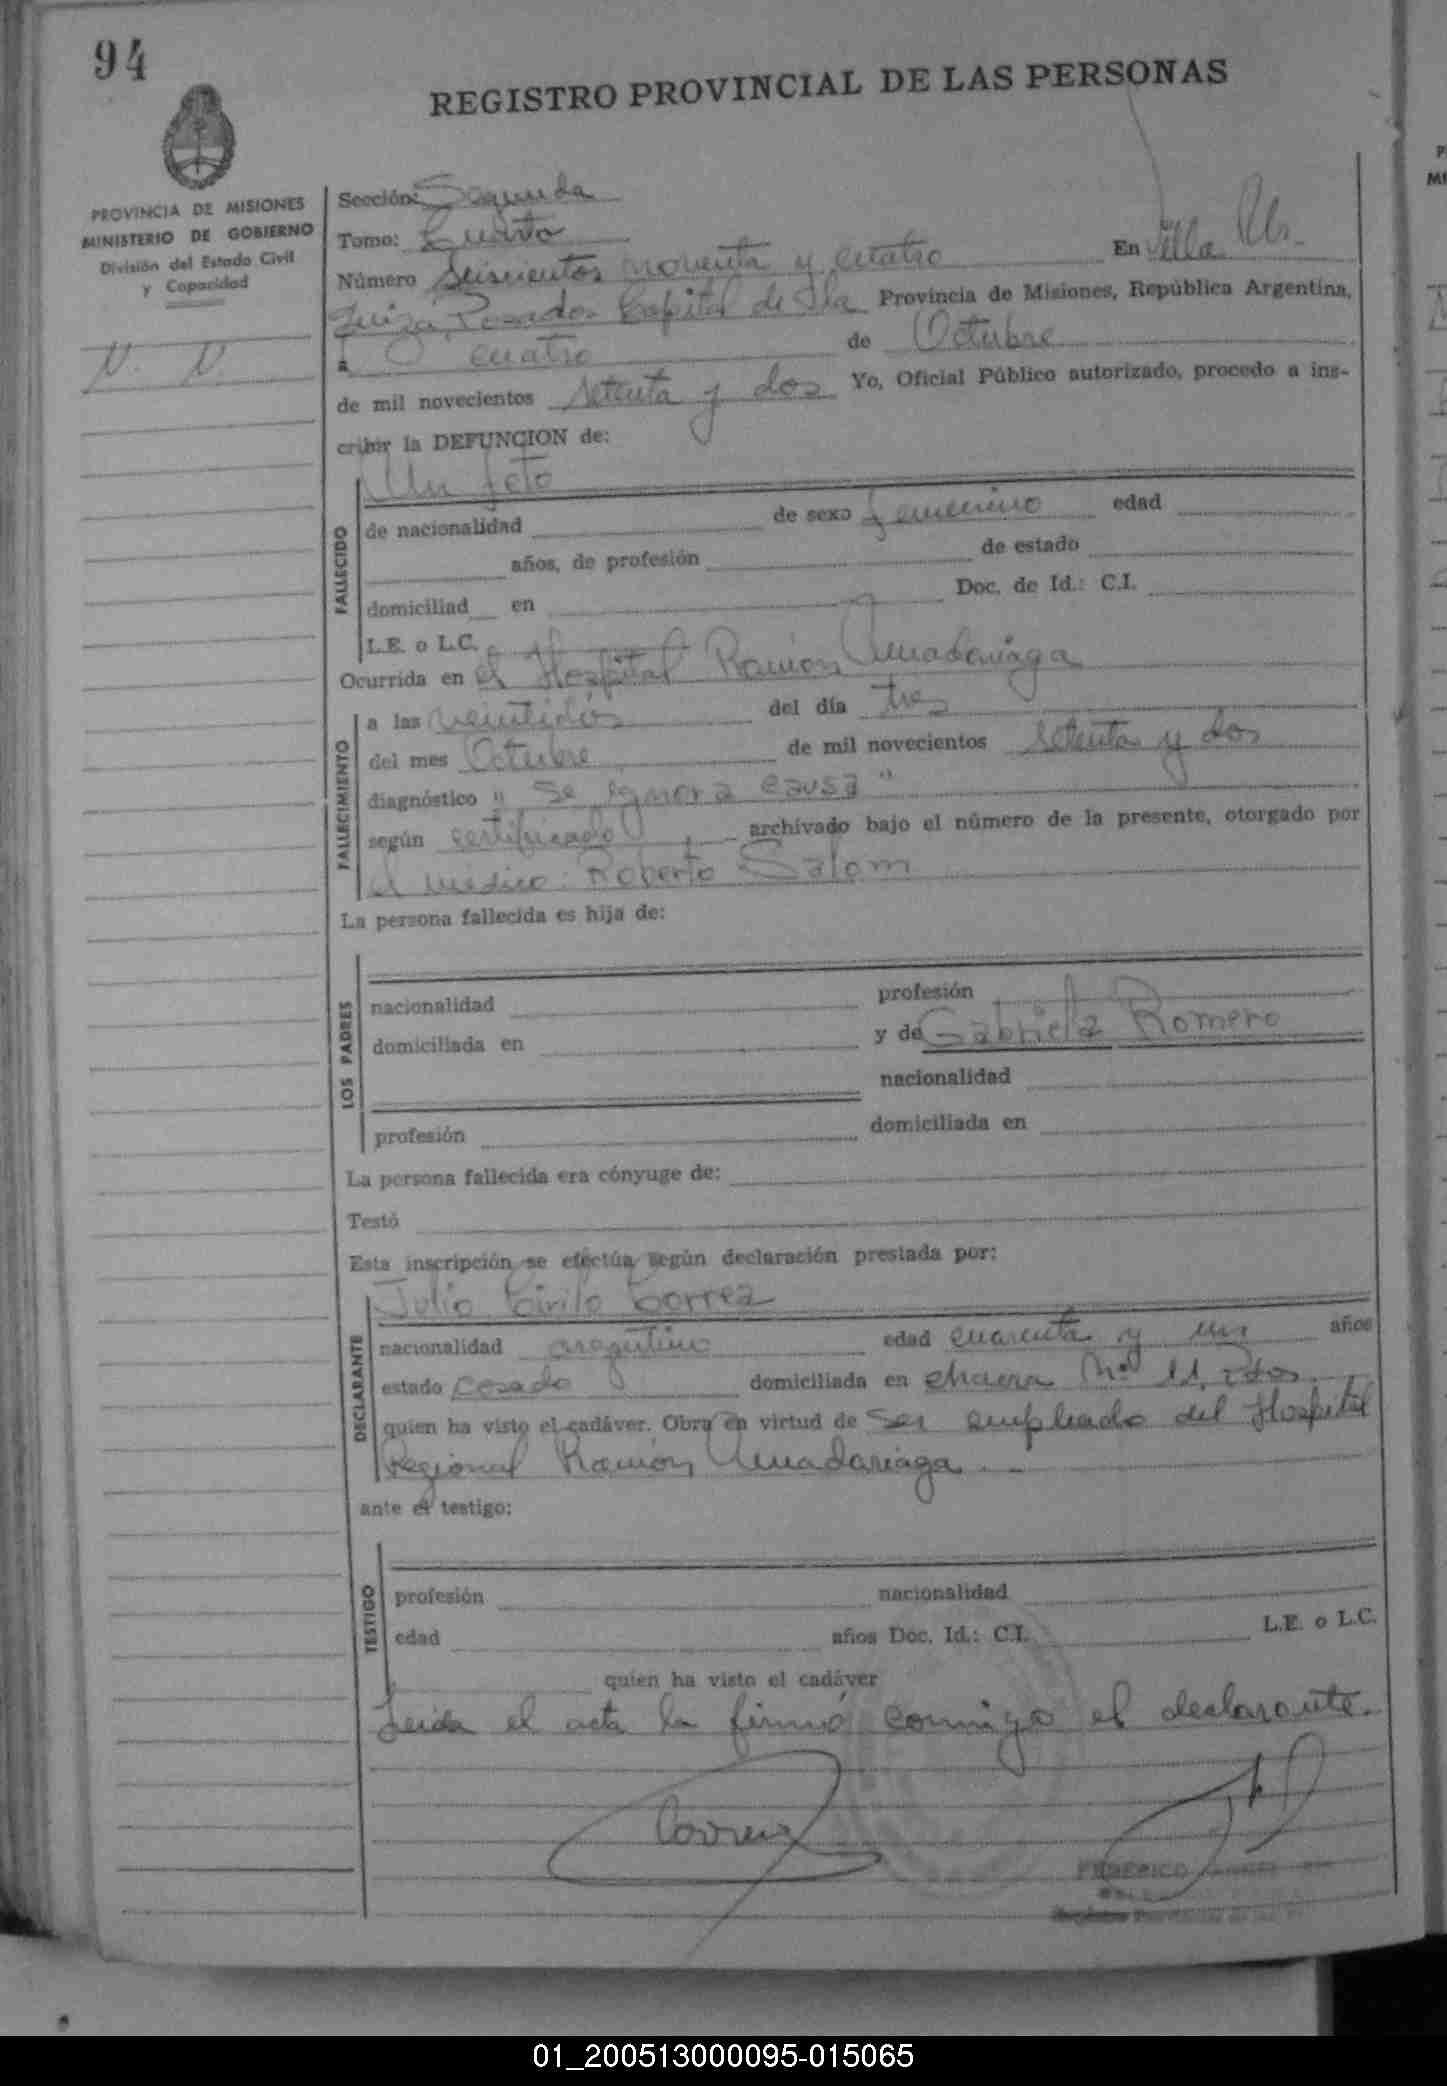 94
REGISTRO PROVINCIAL DE LAS PERSONAS
PROVINCIA DE MISIONES
MINISTERIO DE GOBIERNO
División del Estado Civil
y Capacidad
N. N.
Sección: Segunda
Tomo: Cuarto
Número Seiscientos noventa y cuatro En Villa Ur-
quiza, Posadas Capital de la Provincia de Misiones, República Argentina,
a cuatro de Octubre
de mil novecientos setenta y dos Yo, Oficial Público autorizado, procedo a ins-
cribir la DEFUNCION de:
Un feto
FALLECIDO
de nacionalidad de sexo femenino edad
años, de profesión de estado
domiciliad en Doc. de Id.: C.I.
L.E. o L.C.
Ocurrida en el Hospital Ramón Madariaga
FALLECIMIENTO
a las veintidós del día tres
del mes Octubre de mil novecientos setenta y dos
diagnóstico "se ignora causa"
según certificado, archivado bajo el número de la presente, otorgado por
el médico: Roberto Salom
La persona fallecida es hija de:
LOS PADRES
nacionalidad profesión
domiciliada en y de Gabriela Romero
nacionalidad
profesión domiciliada en
La persona fallecida era cónyuge de:
Testó
Esta inscripción se efectúa según declaración prestada por:
Julio Cirilo Correa
DECLARANTE
nacionalidad argentino edad cuarenta y un años
estado casado domiciliada en chacra Nº 11, Pdas.
quien ha visto el cadáver. Obra en virtud de ser empleado del Hospital
Regional Ramón Madariaga.
ante el testigo:
TESTIGO
profesión nacionalidad
edad años Doc. Id.: C.I. L.E. o L.C.
quien ha visto el cadáver
Leida el acta la firmó conmigo el declarante.
FEDERICO
01_200513000095-015065